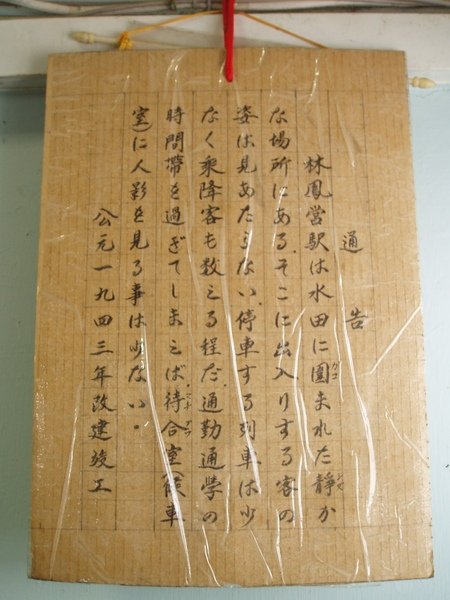 通告
林鳳営駅は水田に圍まれた静か
な場所にある。そこに出入りする客の
姿は見あたらない。停車する列車は少
なく乗降客も数える程だ。通勤通學の
時間帯を過ぎてしまえば待合室(候車
室)に人影を見る事は少ない。
公元一九四三年改建竣工